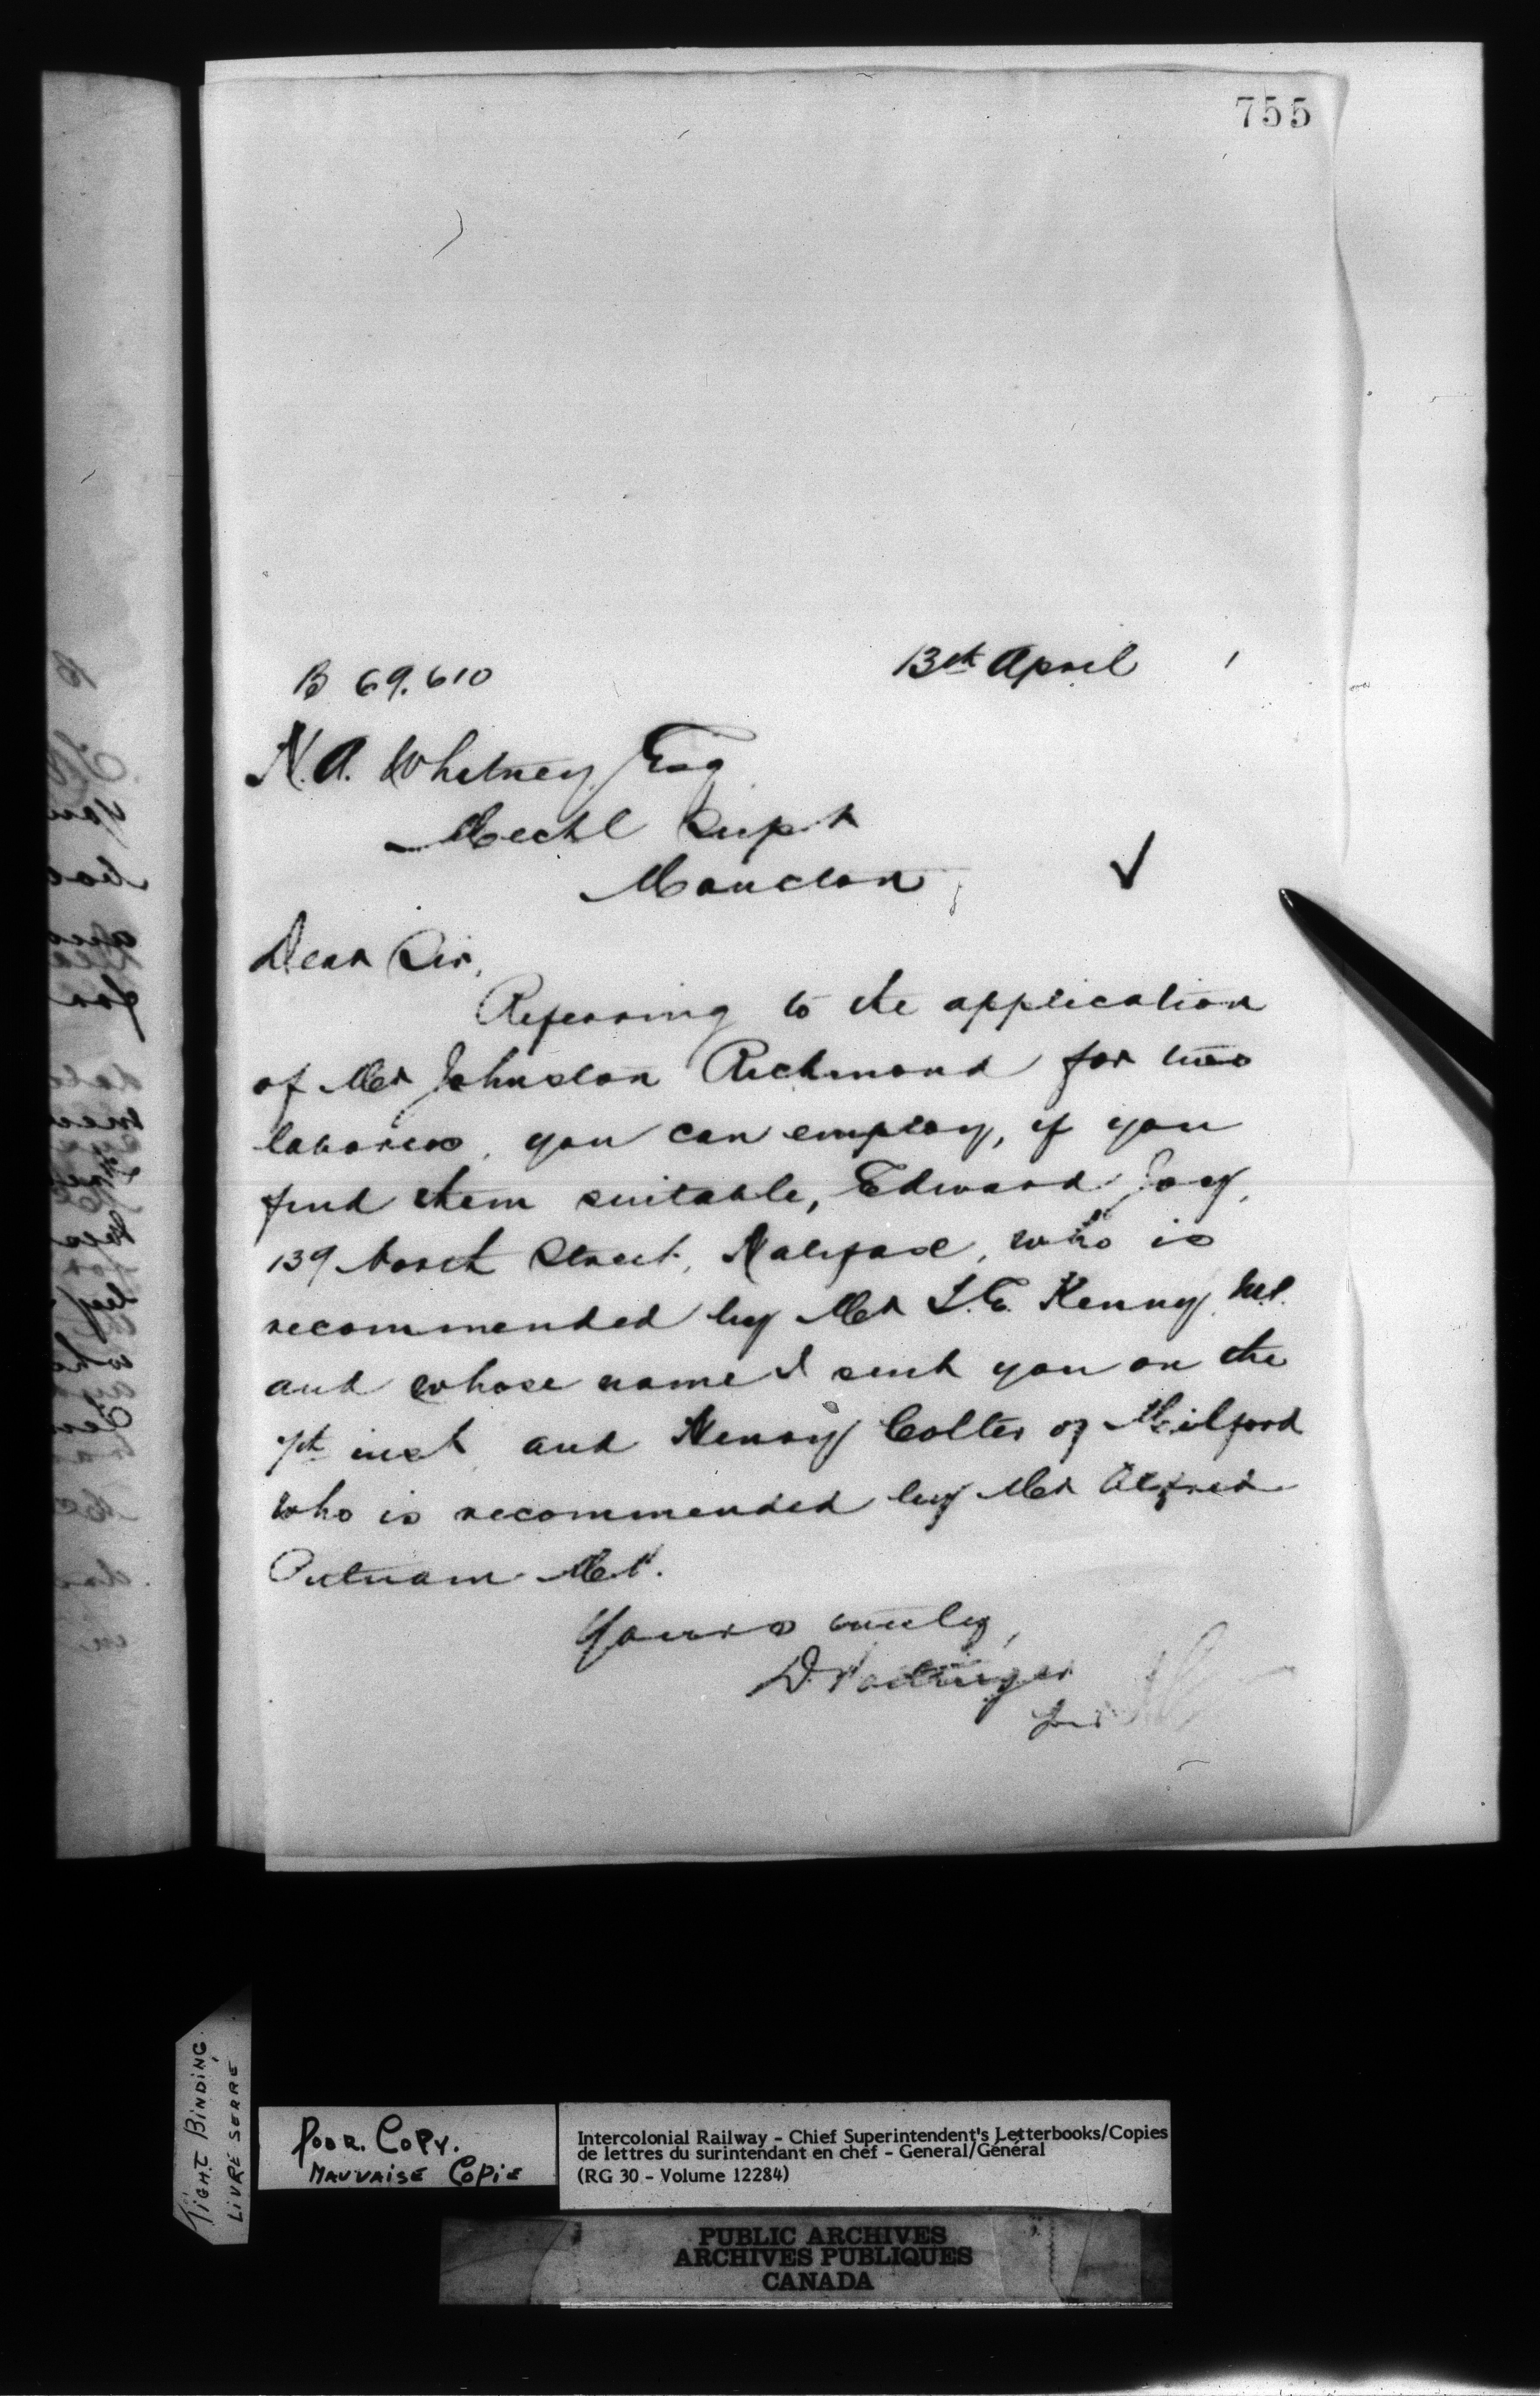 755
B 69.610
13th April 1
N.A. Whitney Esq
Mechl Supt
Moncton
Dear Sir,
Referring to the application
of Mr Johnston Richmond for two
laborers, you can employ, if you
find them suitable, Edward Joy,
139 North Street, Halifax, who is
recommended by Mr T.E. Kenny M.P.
and whose name I sent you on the
7th inst and Henry Colter of Milford
who is recommended by Mr Alfred
Putnam M.P.
Yours truly,
D. Pottinger
per
TIGHT BINDING
LIVRE SERRE
POOR. COPY.
MAUVAISE COPIE
Intercolonial Railway - Chief Superintendent's Letterbooks/Copies
de lettres du surintendant en chef - General/Général
(RG 30 - Volume 12284)
PUBLIC ARCHIVES
ARCHIVES PUBLIQUES
CANADA